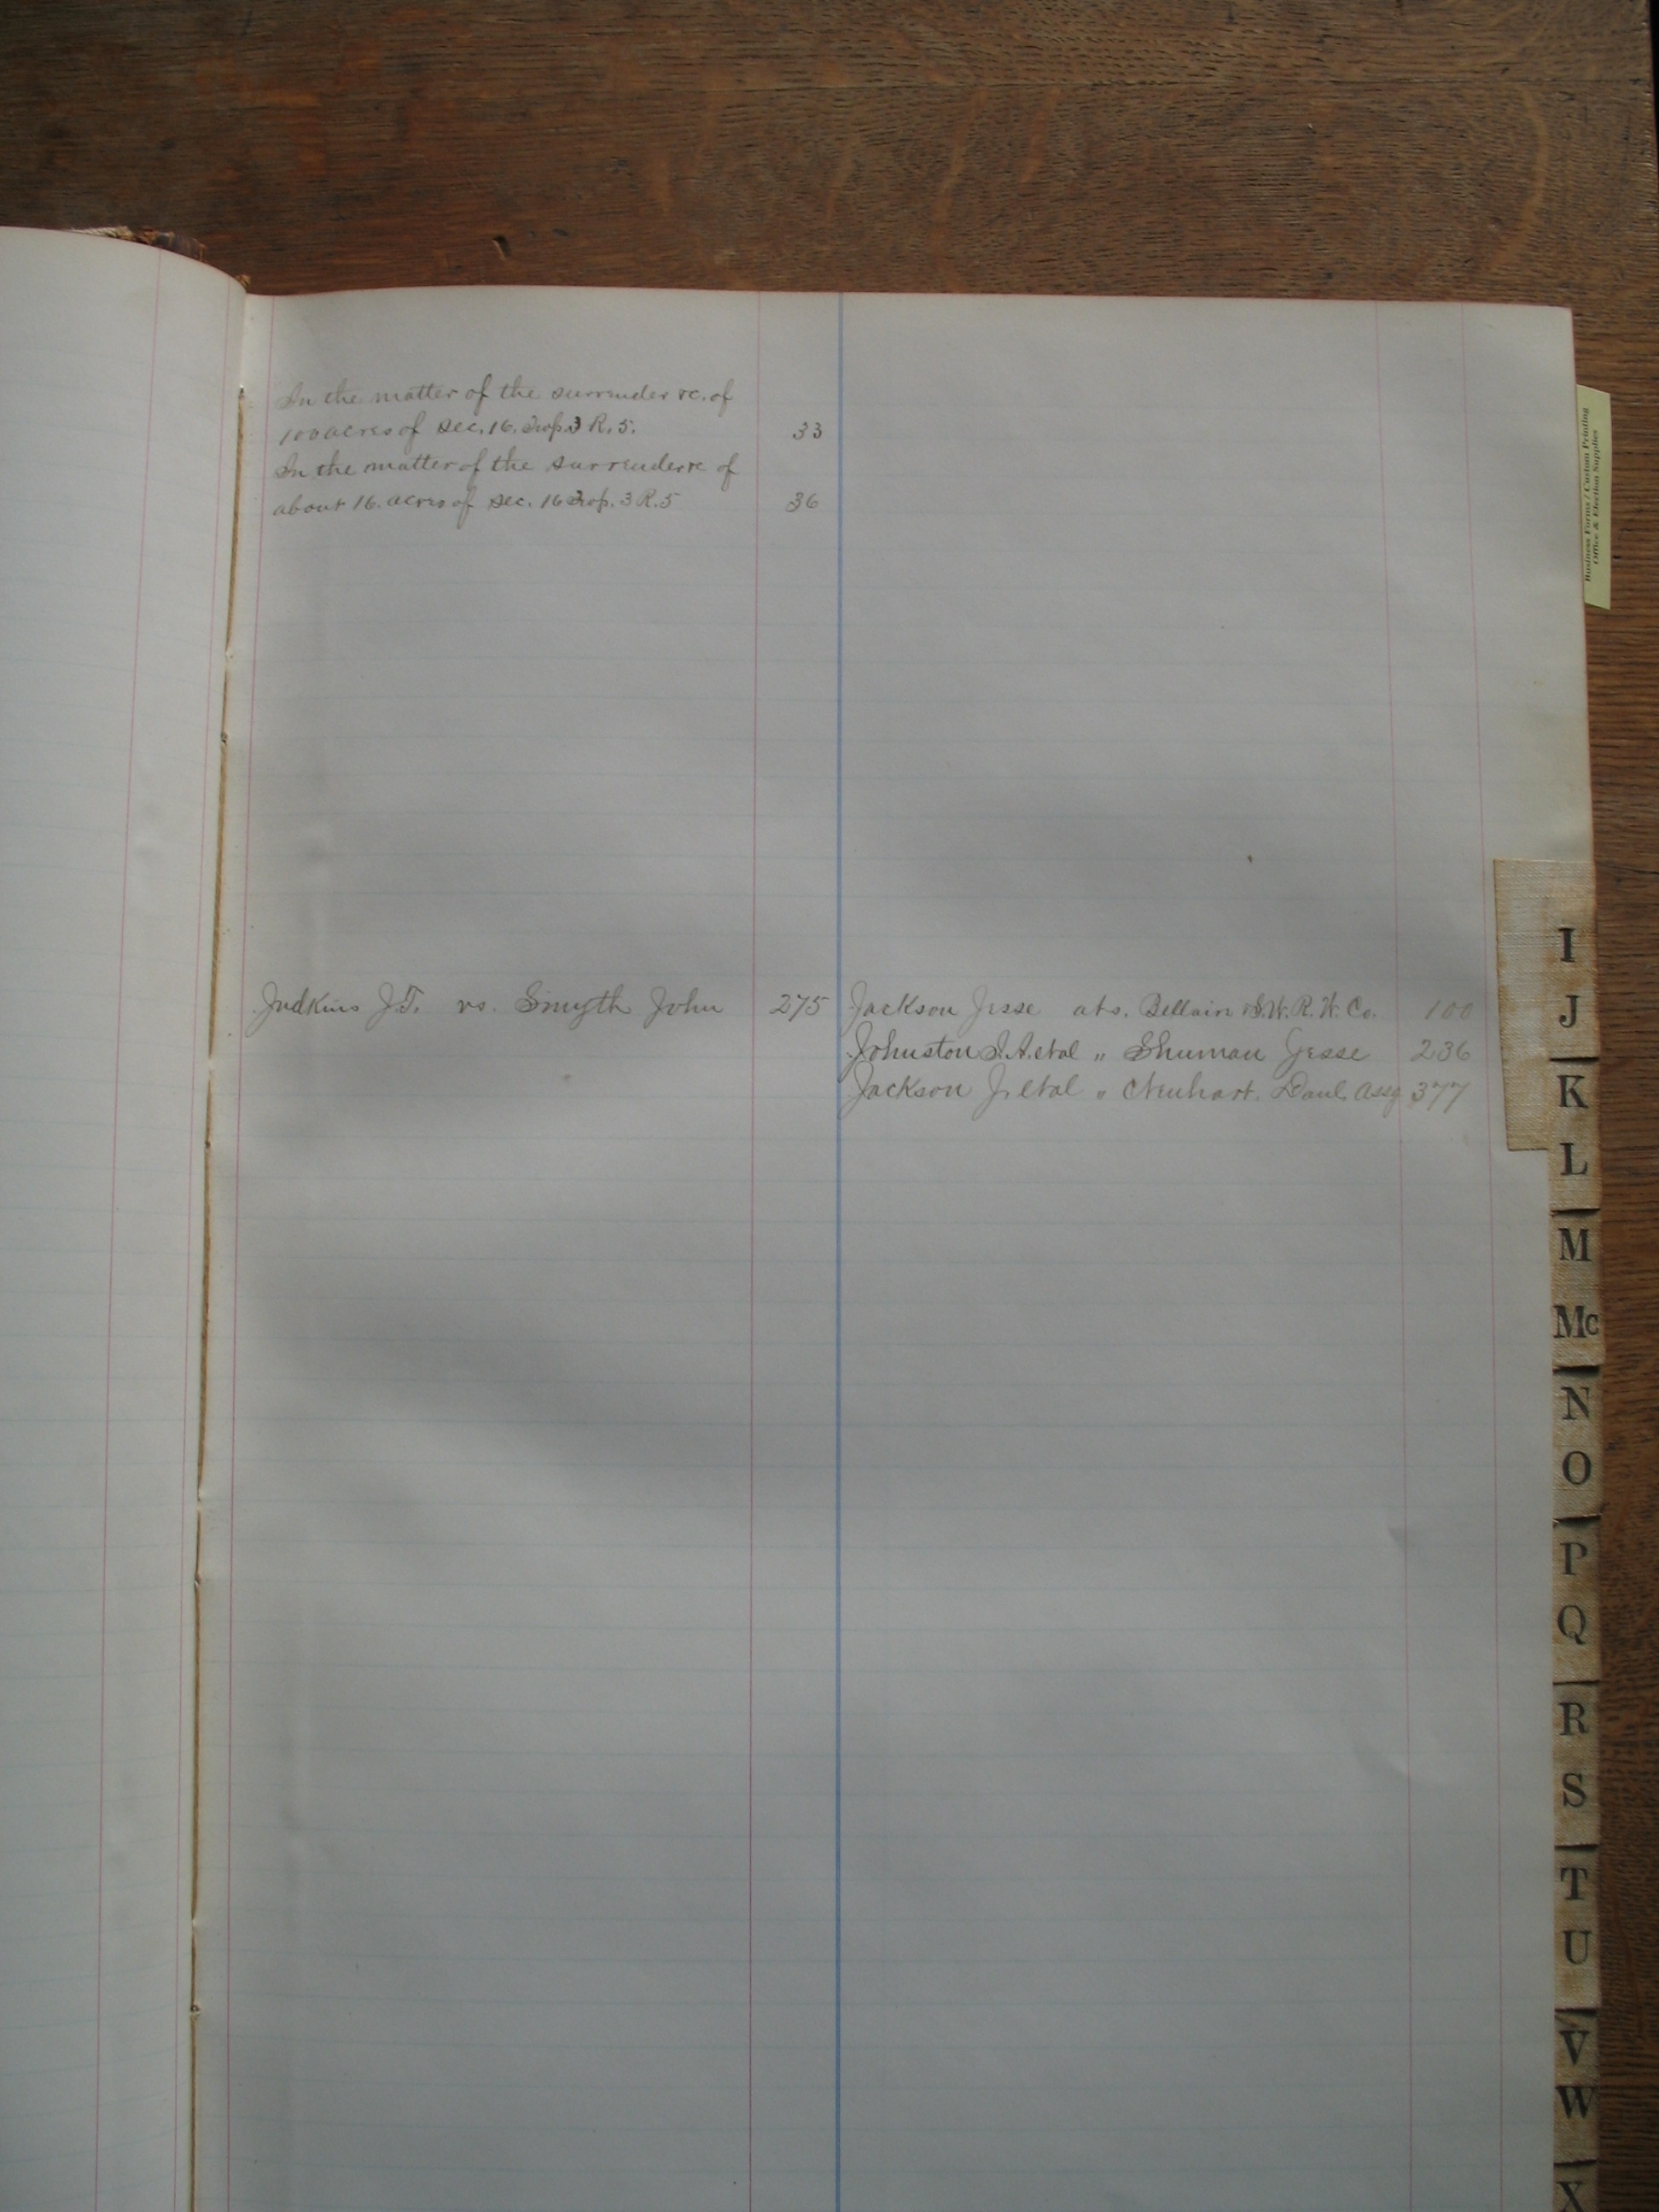 In the matter of the surrender &c. of
100 acres of Sec. 16. Trop. 3 R. 5. 33
In the matter of the surrender &c of
about 16. acres of Sec. 16 Trop. 3 R. 5 36
Judkins J.T. vs. Smyth John 275
Jackson Jesse ats. Bellair & S.W. R.W. Co. 100
Johnston S.A. etal " Shuman Jesse 236
Jackson J. etal " Neuhart Danl. Assg 377
Business Forms / Custom Printing
Office & Election Supplies
I
J
K
L
M
Mc
N
O
P
Q
R
S
T
U
V
W
X